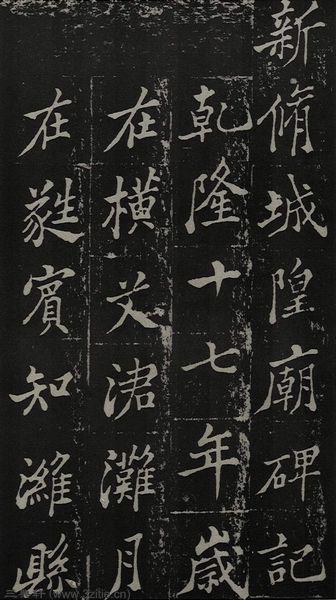 新脩城隍廟碑記
乾隆十七年歲
在橫艾涒灘月
在蕤賓知濰縣
(www.3zitie.cn)